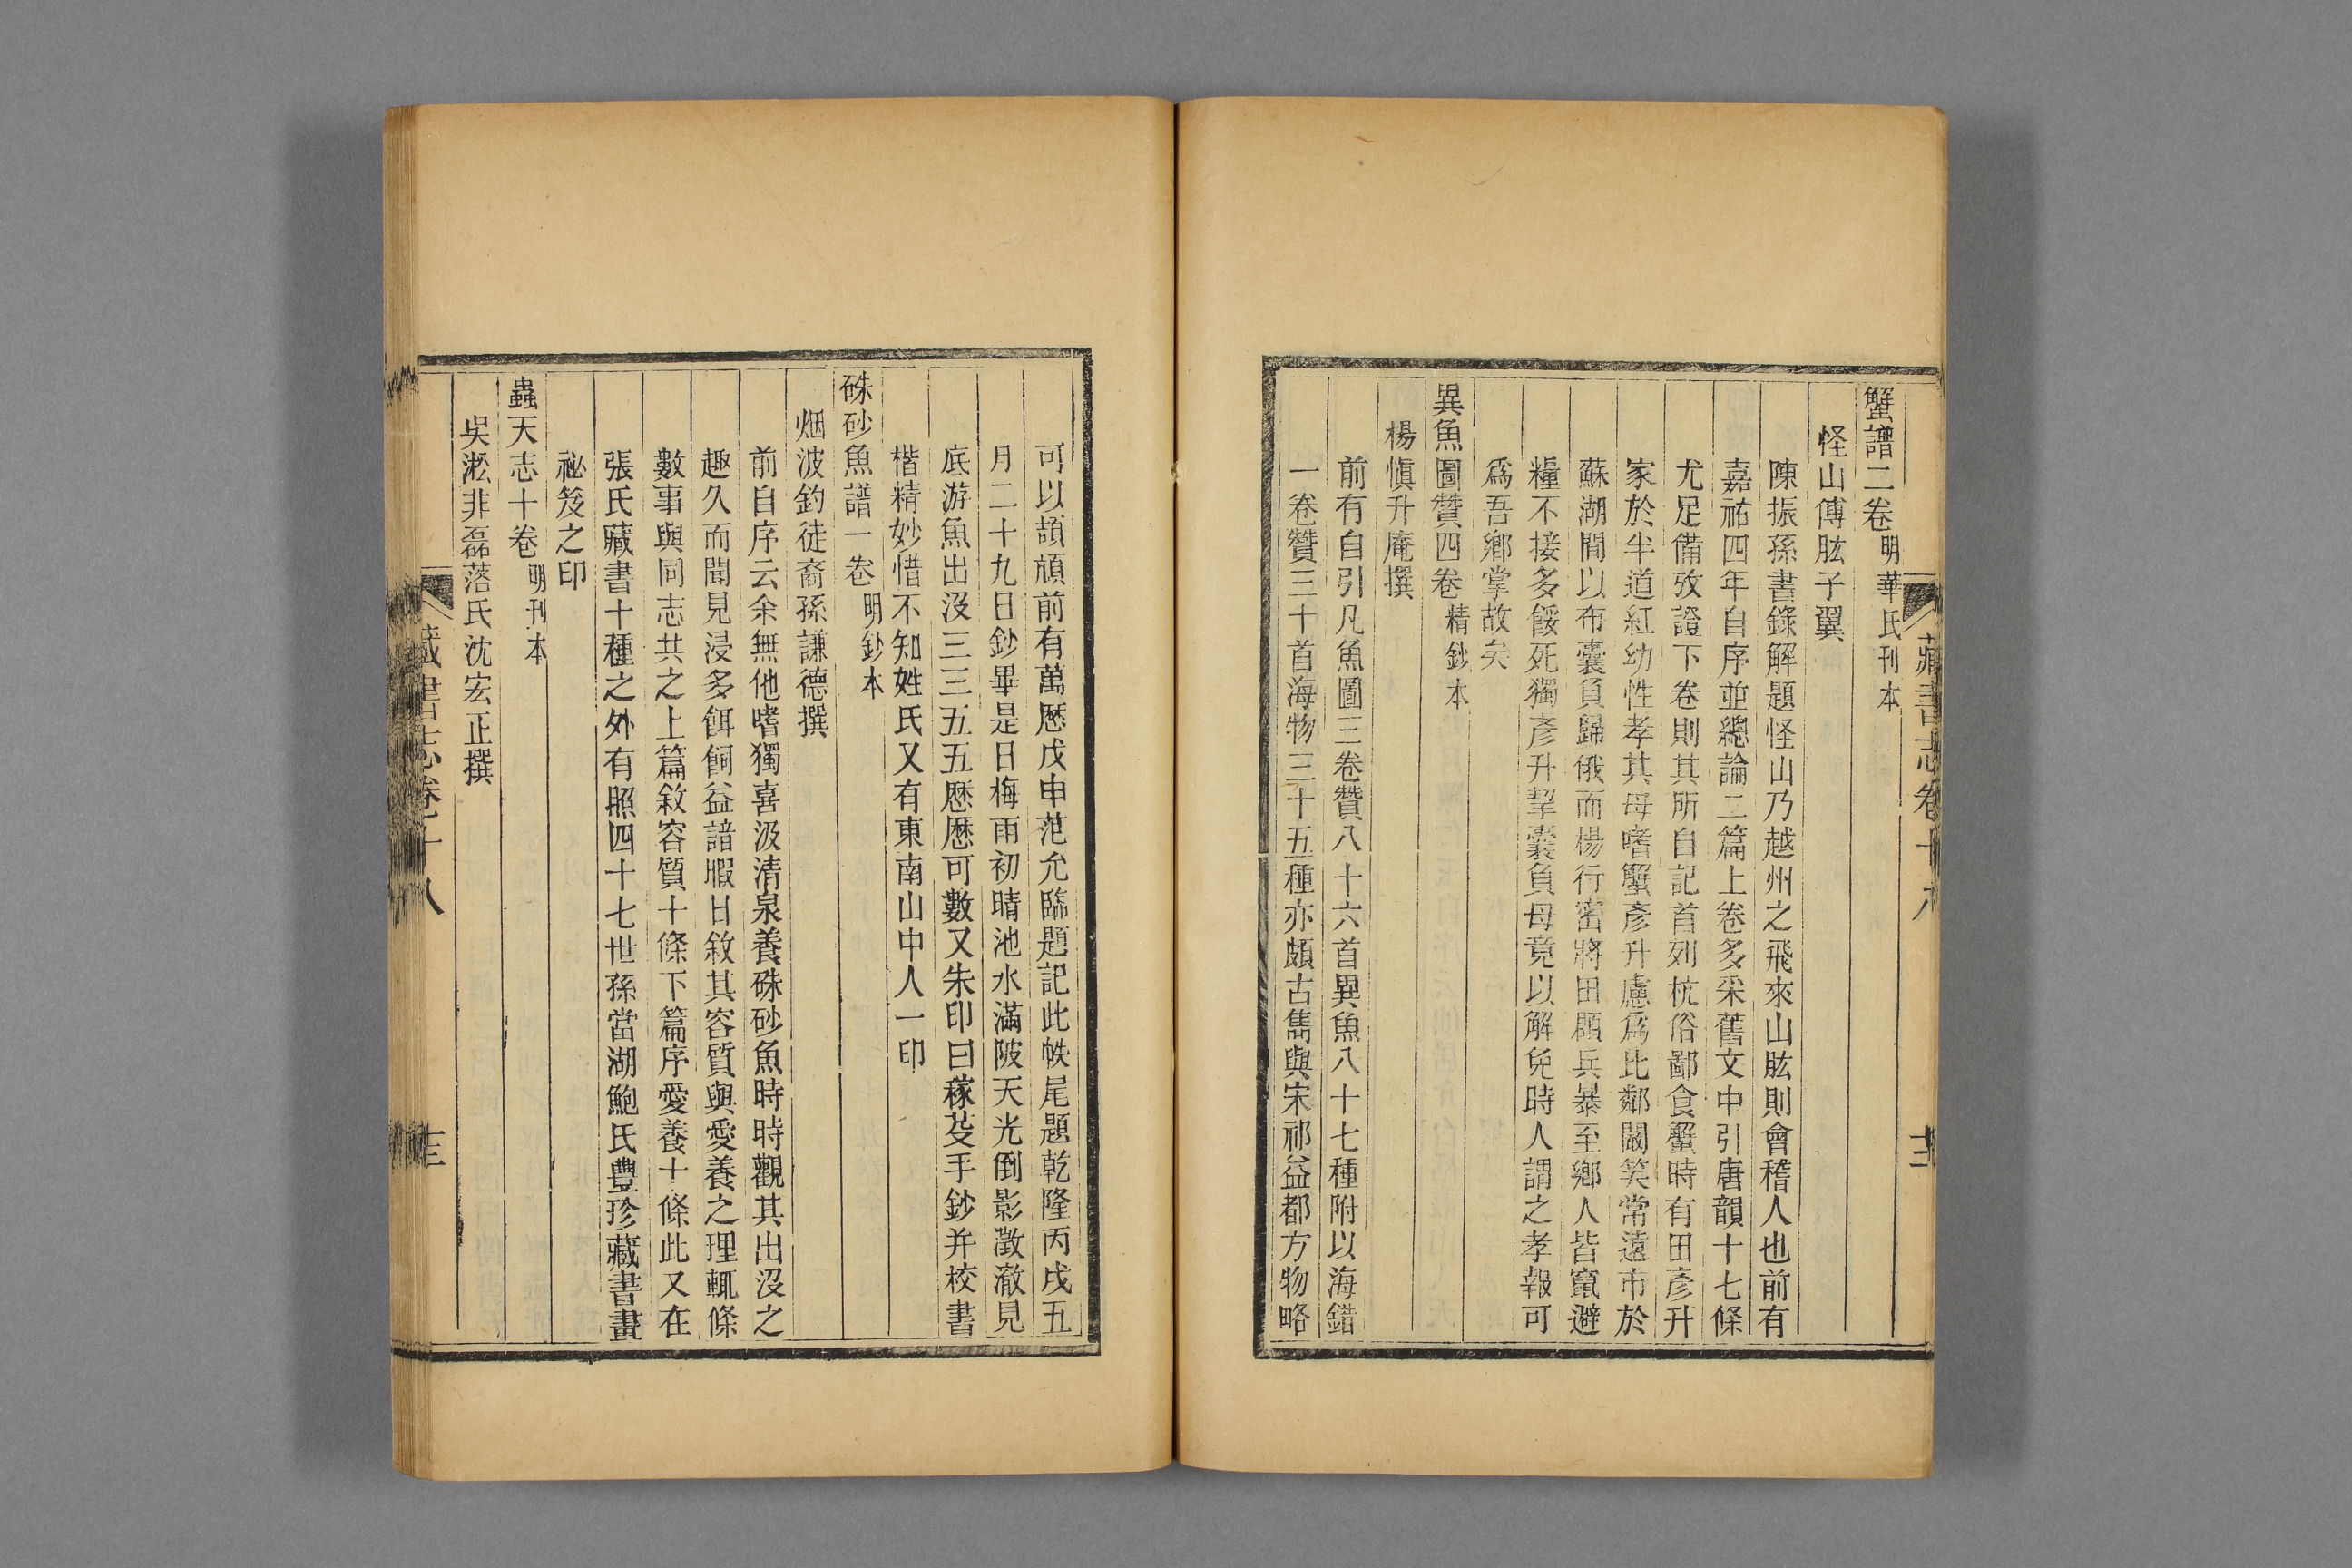 蟹譜二卷明華氏刊本
怪山傅肱子翼
陳振孫書錄解題怪山乃越州之飛來山肱則會稽人也前有
嘉祐四年自序並總論二篇上卷多采舊文中引唐韻十七條
尤足備攷證下卷則其所自記首列杭俗鄙食蟹時有田彥升
家於半道紅幼性孝其母嗜蟹彥升慮爲比鄰闞笑常遠市於
蘇湖間以布囊負歸俄而楊行密將田頵兵暴至鄉人皆竄避
糧不接多餒死獨彥升挈囊負母竟以解免時人謂之孝報可
爲吾鄉掌故矣
異魚圖贊四卷精鈔本
楊愼升庵撰
前有自引凡魚圖三卷贊八十六首異魚八十七種附以海錯
一卷贊三十首海物三十五種亦頗古雋與宋祁益都方物略
可以頡頏前有萬厯戊申范允臨題記此帙尾題乾隆丙戌五
月二十九日鈔畢是日梅雨初晴池水滿陂天光倒影澂澈見
底游魚出沒三三五五厯厯可數又朱印曰稼芟手鈔并校書
楷精妙惜不知姓氏又有東南山中人一印
硃砂魚譜一卷明鈔本
烟波釣徒裔孫謙德撰
前自序云余無他嗜獨喜汲清泉養硃砂魚時時觀其出沒之
趣久而聞見浸多餌飼益諳暇日敘其容質與愛養之理輒條
數事與同志共之上篇敘容質十條下篇序愛養十條此又在
張氏藏書十種之外有照四十七世孫當湖鮑氏豊珍藏書畫
祕笈之印
蟲天志十卷明刊本
吳淞非磊落氏沈宏正撰
藏書志卷十八